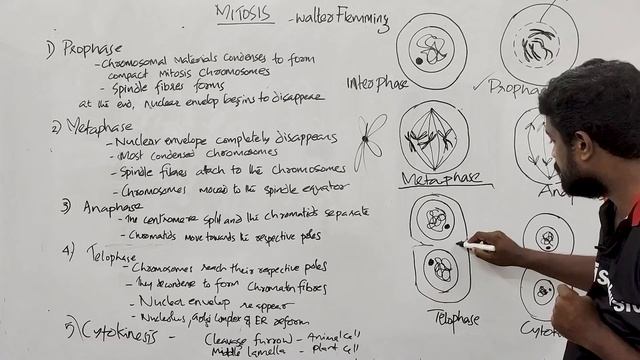 MITOSIS - Walter Flemming
1) Prophase
- Chromosomal Materials condenses to form
compact mitosis chromosomes
- Spindle fibres forms
at the end, nuclear envelop begins to disappear
2) Metaphase
- Nuclear envelope completely disappears
- Most condensed chromosomes
- Spindle fibres attach to the chromosomes
- Chromosomes moved to the spindle equator
3) Anaphase
- The centromere split and the chromatids separate
- Chromatids move towards the respective poles
4) Telophase
- Chromosomes reach their respective poles
- They decondense to form chromatin fibres
- Nuclear envelop reappear
- Nucleolus, golgi complex & ER reform
5) Cytokinesis - Cleavage furrow - Animal cell
Middle lamella - Plant cell
Interphase
Prophas
Metaphase
Ana
Telophase
Cytok